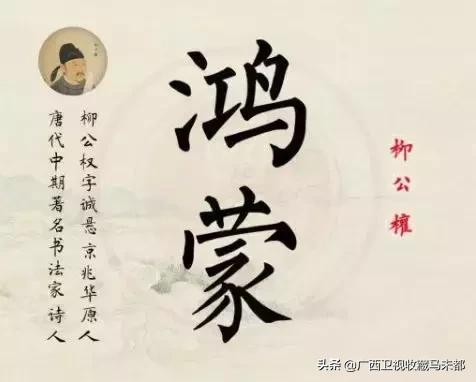 鸿蒙
柳公權
柳公权字诚悬京兆华原人
唐代中期著名书法家诗人
头条@广西卫视收藏马未都